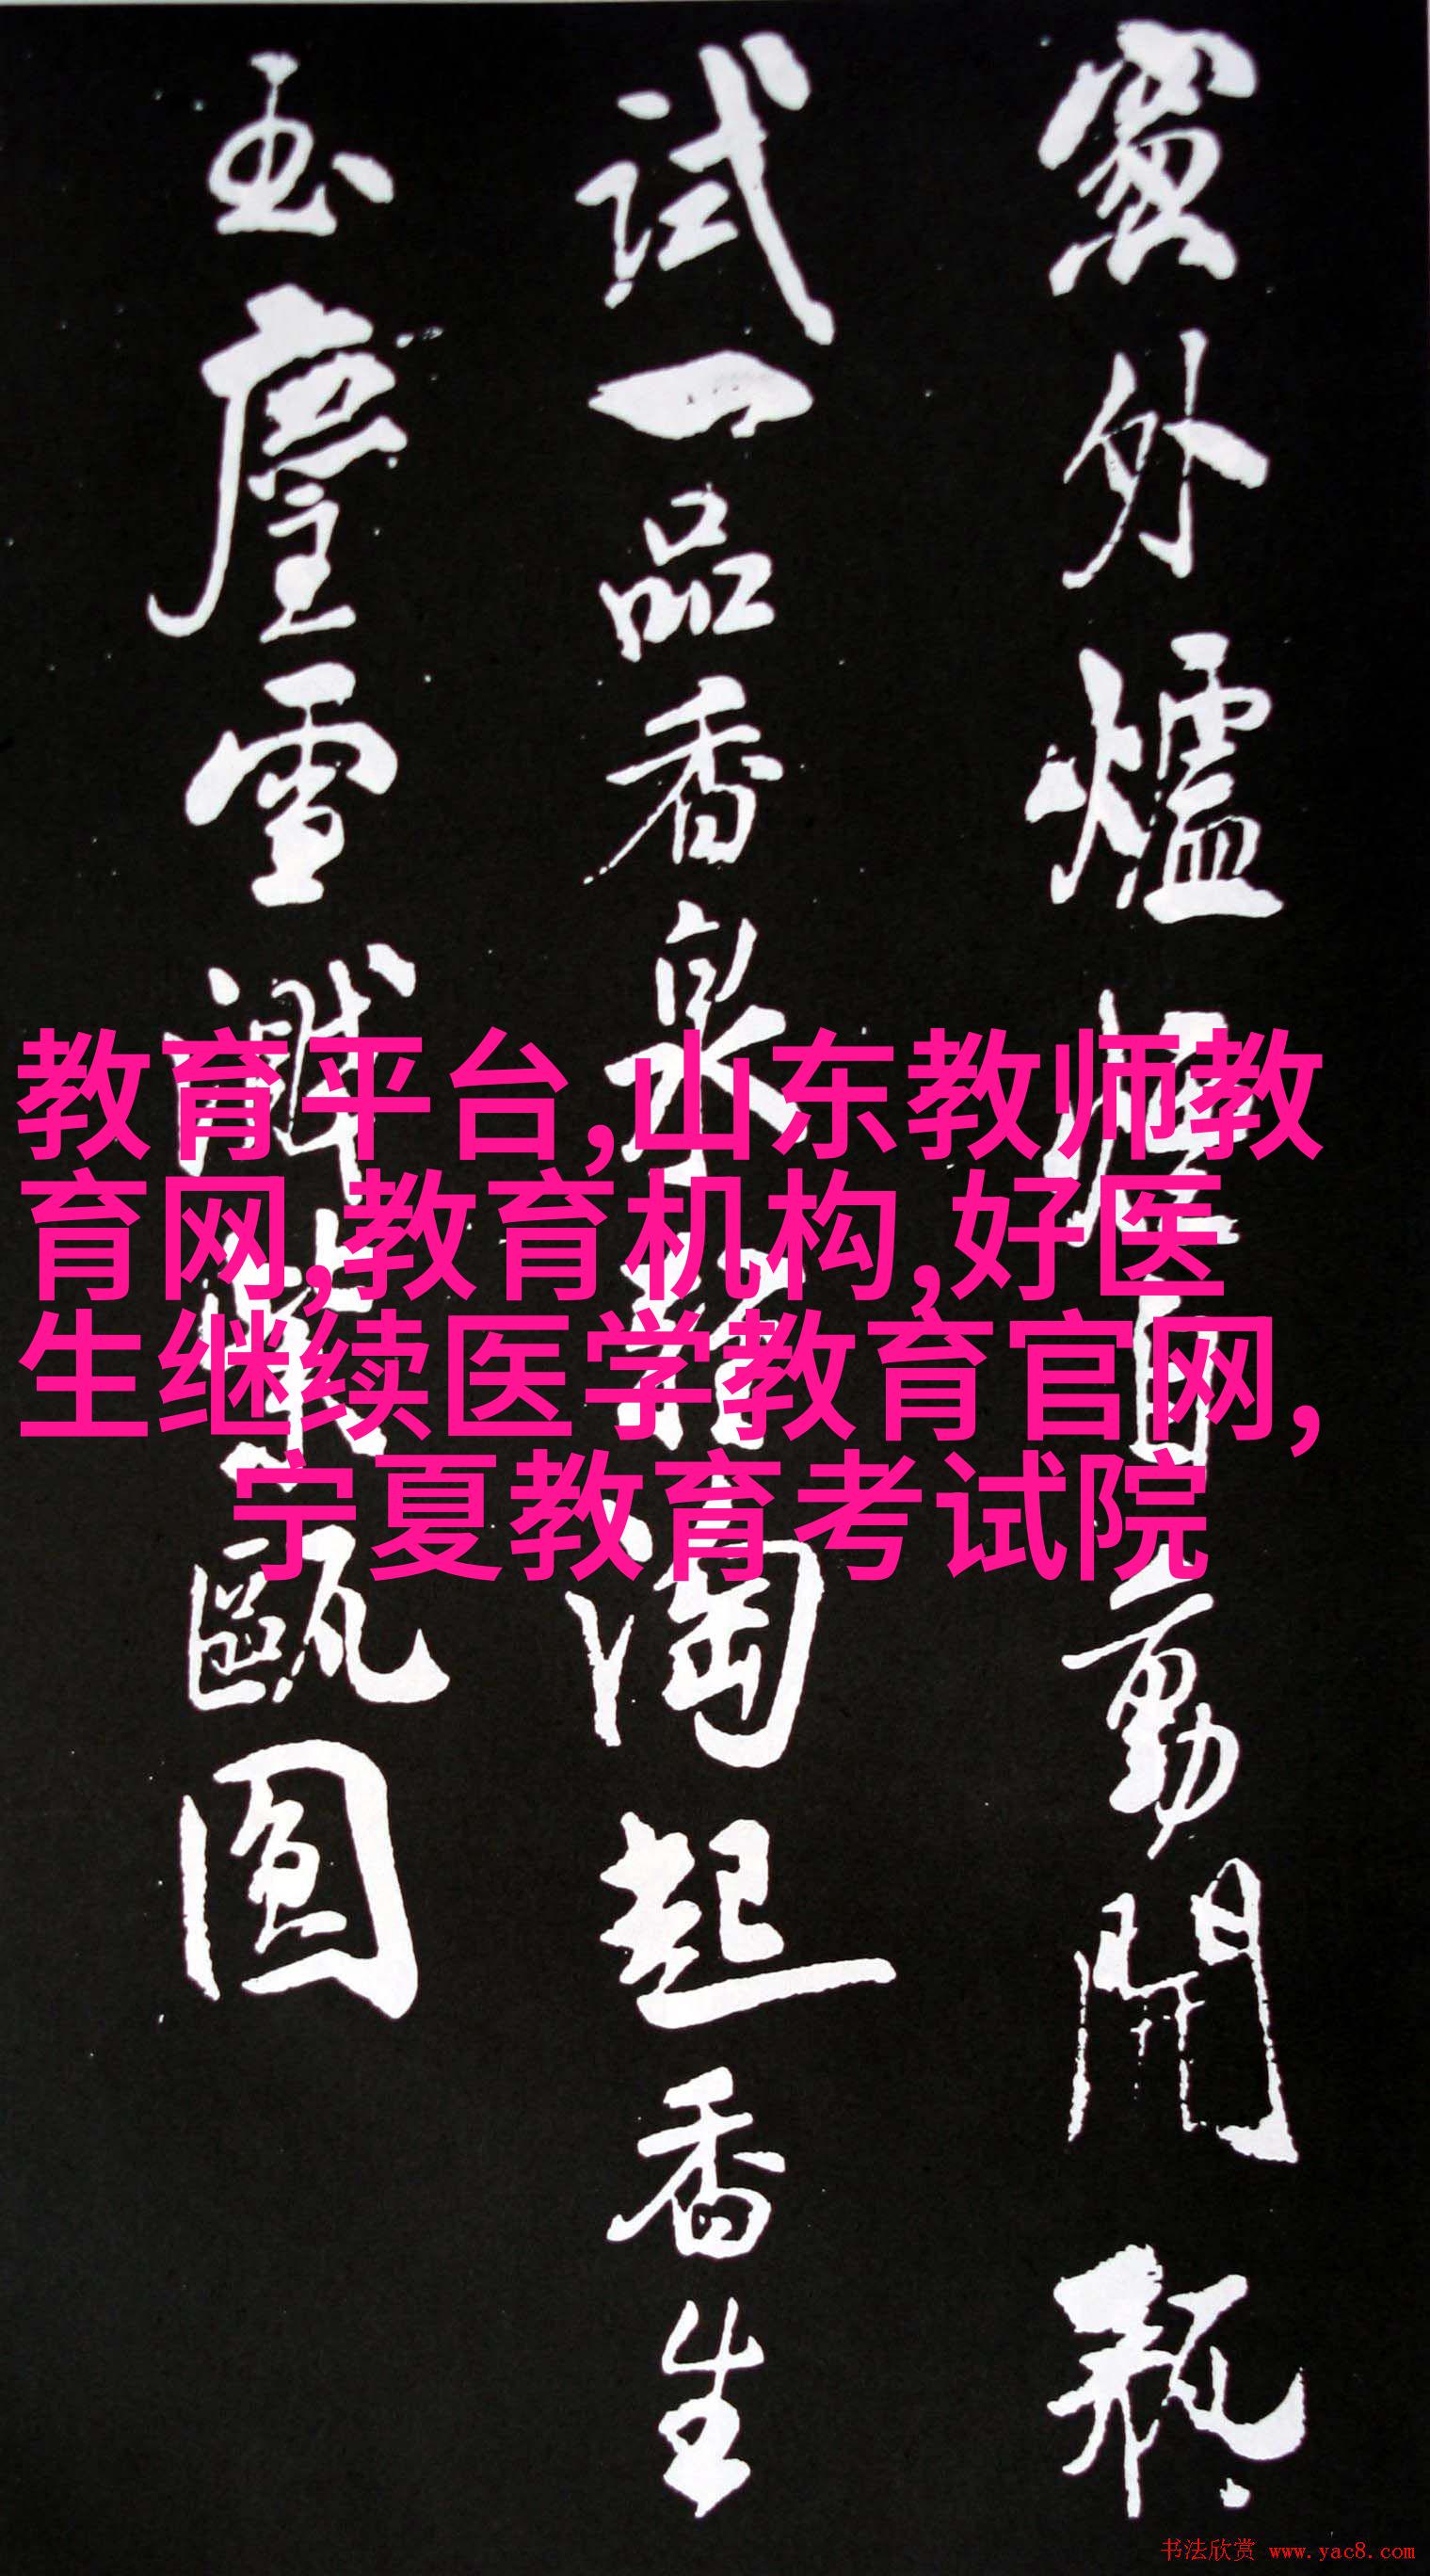 窗外爐煙自動開瓶
試一品香泉輕淘起香生
玉塵雪濺紫甌圓
教育平台,山东教师教
育网,教育机构,好医
生继续医学教育官网,
宁夏教育考试院
书法欣赏 www.yac8.com